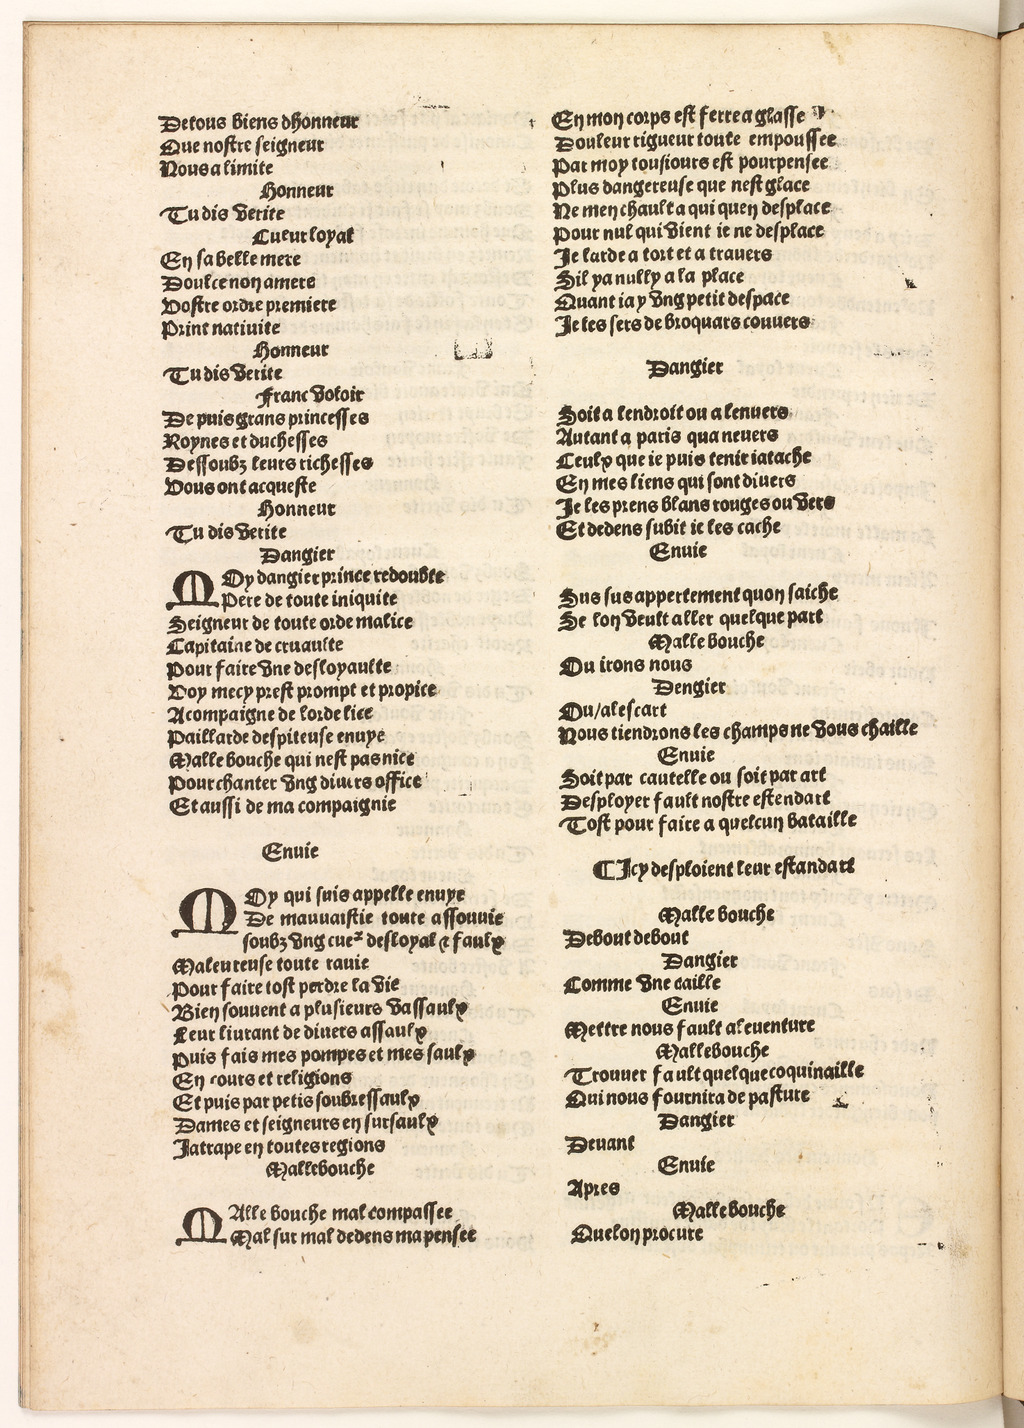 De tous biens dhonneur
Que nostre seigneur
Nous a limite
Honneur
Tu dis verite
Cueur loyal
En sa belle mere
Doulce non amere
Vostre ordre premiere
Print nativite
Honneur
Tu dis verite
Franc voloir
De puis grans princesses
Roynes et duchesses
Dessoubz leurs richesses
Vous ont acqueste
Honneur
Tu dis verite
Dangier
MOy dangier prince redoubte
Pere de toute iniquite
Seigneur de toute orde malice
Capitaine de cruaulte
Pour faire vne desloyaulte
Voy me cy prest prompt et propice
Acompaigne de lorde lice
Paillarde despiteuse enuye
Malle bouche qui nest pas nice
Pour chanter vng diuers office
Et aussi de ma compaignie
Enuie
MOy qui suis appelle enuye
De mauuaistie toute assouuie
soubz vng cueꝛ desloyal ⁊ faulx
Maleureuse toute rauie
Pour faire tost perdre la vie
Bien souuent a plusieurs vassaulx
Leur liurant de diuers assaulx
Puis fais mes pompes et mes saulx
En cours et religions
Et puis par petis soubressaulx
Dames et seigneurs en sursaulx
Jatrape en toutes regions
Mallebouche
MAlle bouche mal compassee
Mal sur mal dedens ma pensee
En mon corps est ferre a glasse
Douleur rigueur toute empoussee
Par moy tousiours est pourpensee
Plus dangereuse que nest glace
Ne men chault a qui quen desplace
Pour nul qui vient ie ne desplace
Je larde a tort et a trauers
Sil ya nully a la place
Quant iay vng petit despace
Je les sers de broquars couuers
Dangier
Soit a lendroit ou a lenuers
Autant a paris qua neuers
Ceulx que ie puis tenir iatache
En mes liens qui sont diuers
Je les prens blans rouges ou vers
Et dedens subit ie les cache
Enuie
Sus sus appertement quon saiche
Se lon veult aller quelque part
Malle bouche
Ou irons nous
Dengier
Ou/a lescart
Nous tiendrons les champs ne vous chaille
Enuie
Soit par cautelle ou soit par art
Desployer fault nostre estendart
Tost pour faire a quelcun bataille
¶ Icy desploient leur estandart
Malle bouche
Debout debout
Dangier
Comme vne caille
Enuie
Mettre nous fault a leuenture
Mallebouche
Trouuer fault quelque coquinaille
Qui nous fournira de pasture
Dangier
Deuant
Enuie
Apres
Malle bouche
Que lon procure